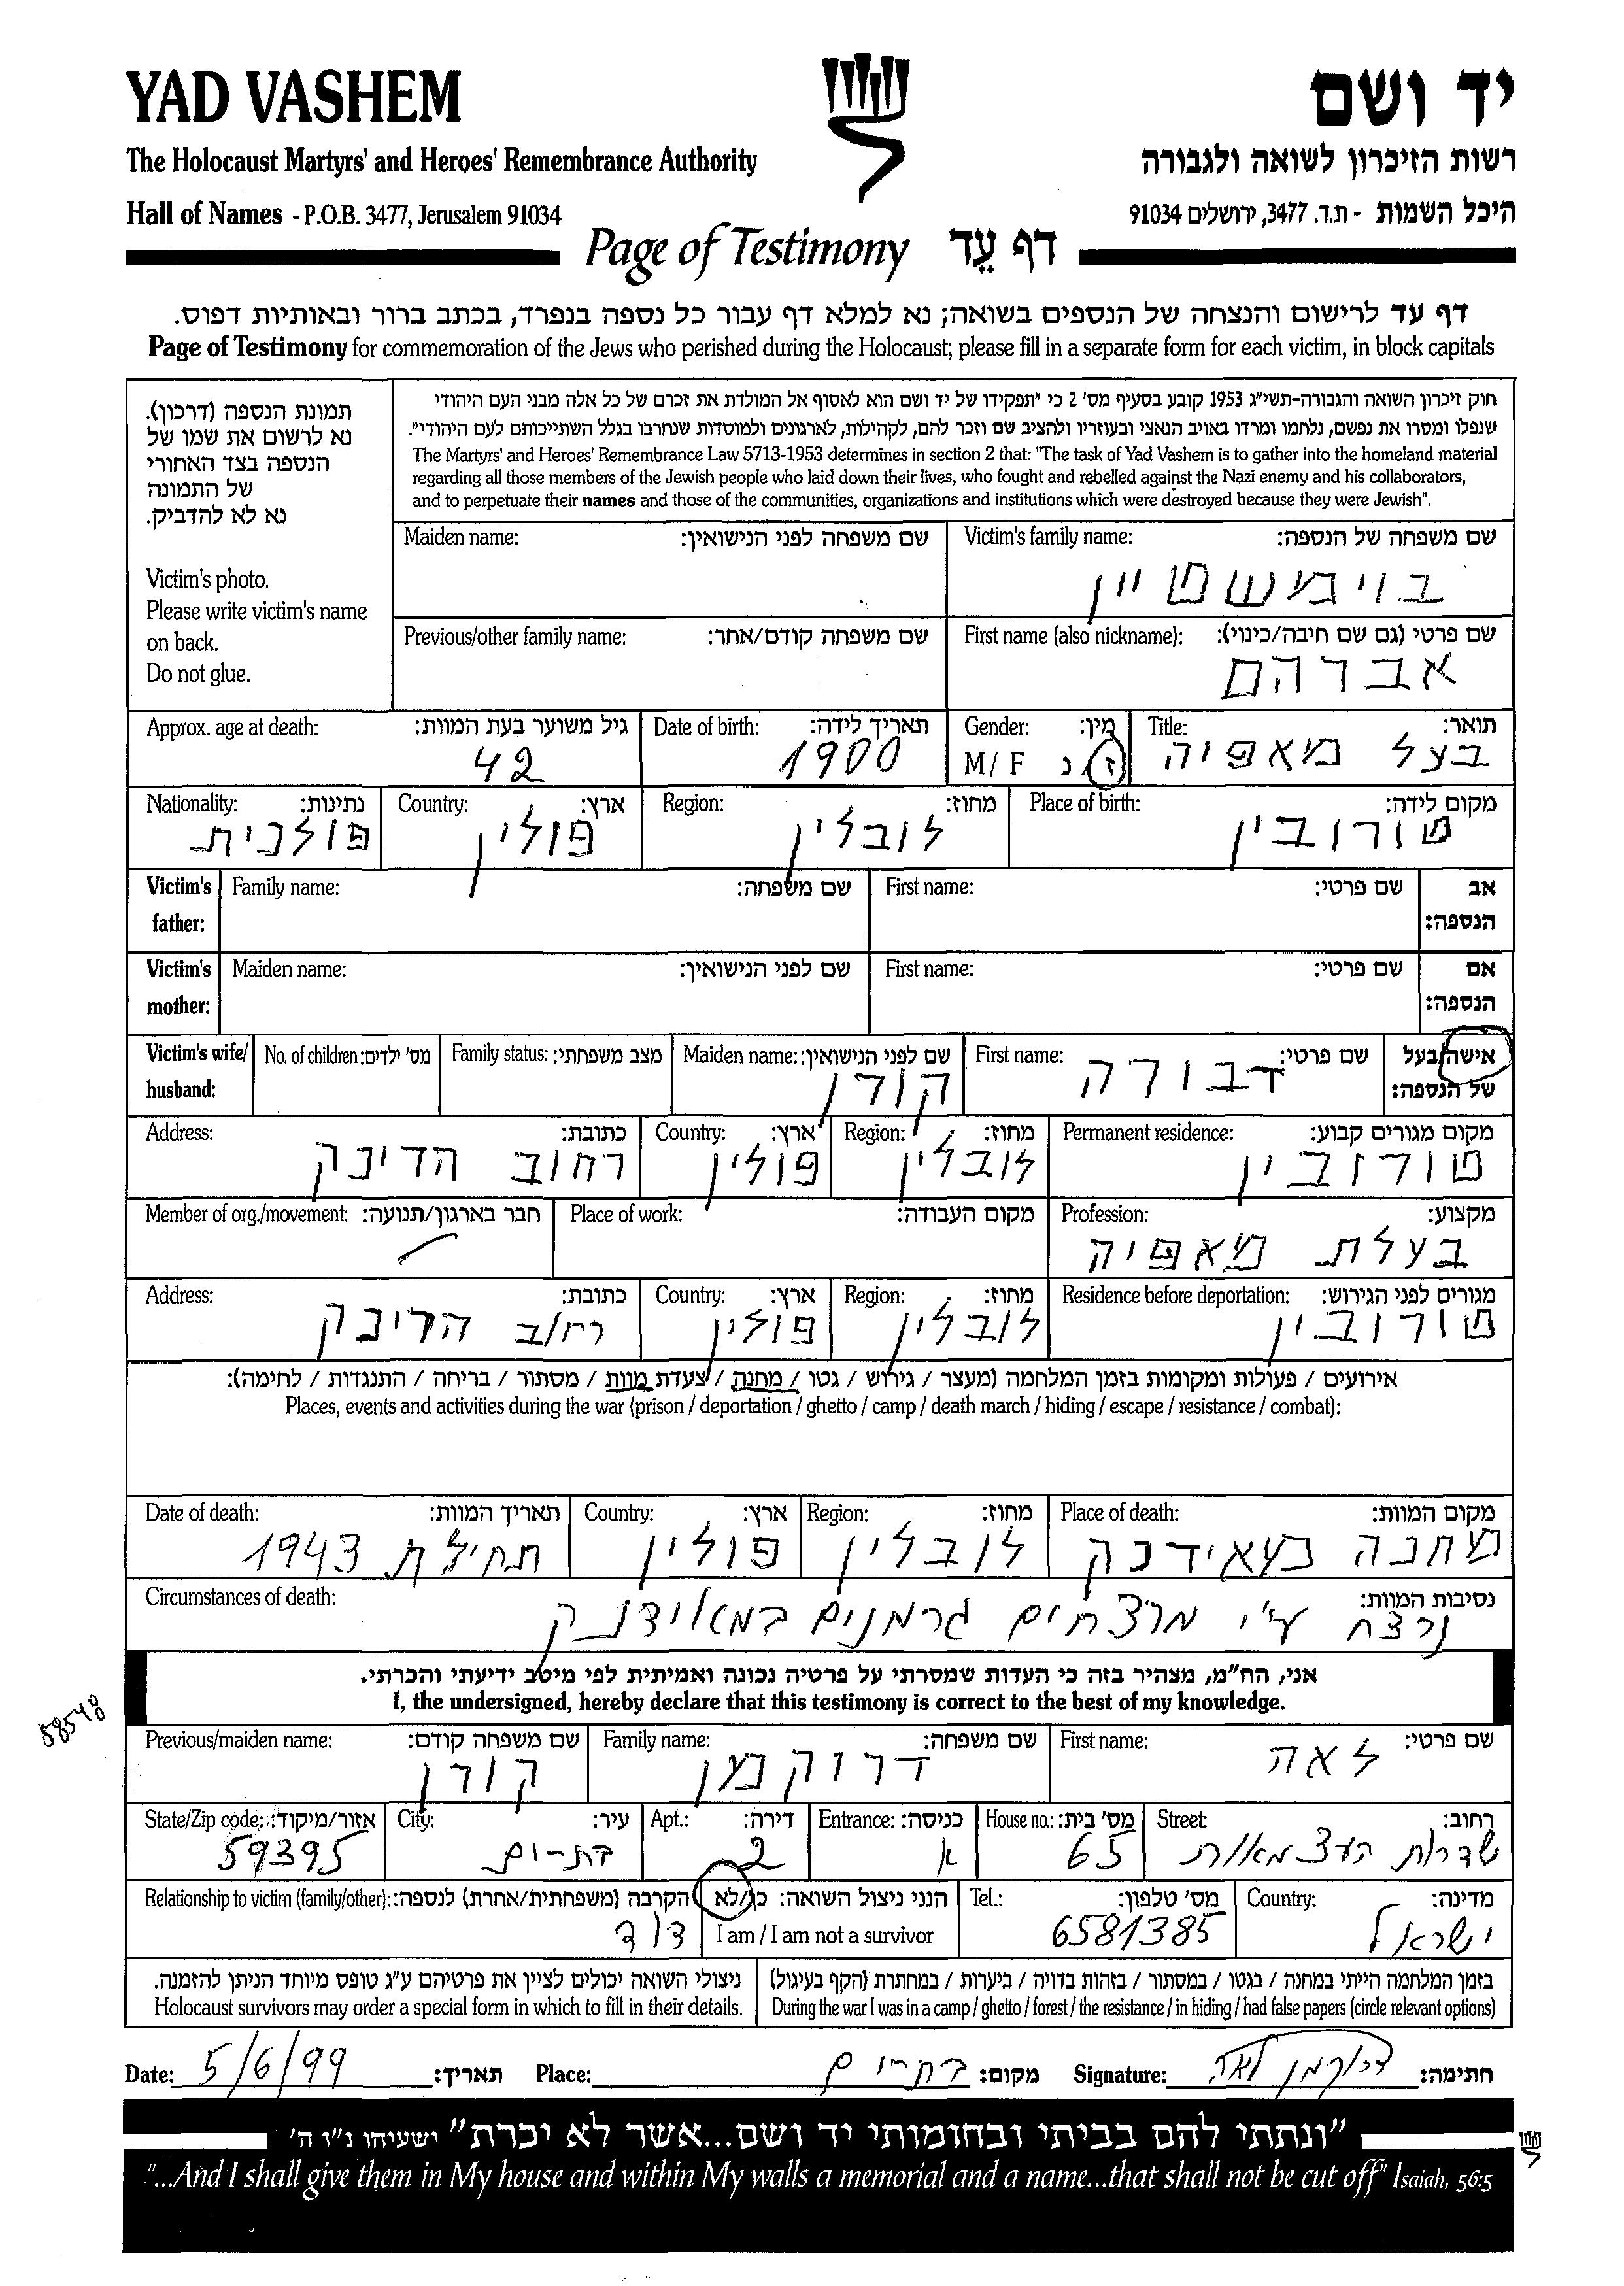 YAD VASHEM
יד ושם
The Holocaust Martyrs' and Heroes' Remembrance Authority
רשות הזיכרון לשואה ולגבורה
Hall of Names - P.O.B. 3477, Jerusalem 91034
היכל השמות - ת.ד. 3477, ירושלים 91034
Page of Testimony דף עֵד
דף עד לרישום והנצחה של הנספים בשואה; נא למלא דף עבור כל נספה בנפרד, בכתב ברור ובאותיות דפוס.
Page of Testimony for commemoration of the Jews who perished during the Holocaust; please fill in a separate form for each victim, in block capitals
תמונת הנספה (דרכון).
נא לרשום את שמו של
הנספה בצד האחורי
של התמונה
נא לא להדביק.
Victim's photo.
Please write victim's name
on back.
Do not glue.
חוק זיכרון השואה והגבורה-תשי"ג 1953 קובע בסעיף מס' 2 כי "תפקידו של יד ושם הוא לאסוף אל המולדת את זכרם של כל אלה מבני העם היהודי
שנפלו ומסרו את נפשם, נלחמו ומרדו באויב הנאצי ובעוזריו ולהציב שם וזכר להם, לקהילות, לארגונים ולמוסדות שנחרבו בגלל השתייכותם לעם היהודי".
The Martyrs' and Heroes' Remembrance Law 5713-1953 determines in section 2 that: "The task of Yad Vashem is to gather into the homeland material
regarding all those members of the Jewish people who laid down their lives, who fought and rebelled against the Nazi enemy and his collaborators,
and to perpetuate their names and those of the communities, organizations and institutions which were destroyed because they were Jewish".
Victim's family name: שם משפחה של הנספה:
בוימשטיין
Maiden name: שם משפחה לפני הנישואין:
First name (also nickname): שם פרטי (גם שם חיבה/כינוי):
אברהם
Previous/other family name: שם משפחה קודם/אחר:
Title: תואר:
בצל מאפיה
Gender: מין:
M / F ז/נ
Date of birth: תאריך לידה:
1900
Approx. age at death: גיל משוער בעת המוות:
42
Place of birth: מקום לידה:
טורובין
Region: מחוז:
לובלין
Country: ארץ:
פולין
Nationality: נתינות:
פולנית
Victim's father: אב הנספה:
First name: שם פרטי:
Family name: שם משפחה:
Victim's mother: אם הנספה:
First name: שם פרטי:
Maiden name: שם לפני הנישואין:
Victim's wife/ husband: אישה/בעל של הנספה:
First name: שם פרטי:
דבורה
Maiden name: שם לפני הנישואין:
קורן
Family status: מצב משפחתי:
No. of children: מס' ילדים:
Permanent residence: מקום מגורים קבוע:
טורובין
Region: מחוז:
לובלין
Country: ארץ:
פולין
Address: כתובת:
רחוב הרינק
Profession: מקצוע:
בעלת מאפיה
Place of work: מקום העבודה:
Member of org./movement: חבר בארגון/תנועה:
Residence before deportation: מגורים לפני הגירוש:
טורובין
Region: מחוז:
לובלין
Country: ארץ:
פולין
Address: כתובת:
רחוב הרינק
אירועים / פעולות ומקומות בזמן המלחמה (מעצר / גירוש / גטו / מחנה / צעדת מוות / מסתור / בריחה / התנגדות / לחימה):
Places, events and activities during the war (prison / deportation / ghetto / camp / death march / hiding / escape / resistance / combat):
Place of death: מקום המוות:
מחנה מאידנק
Region: מחוז:
לובלין
Country: ארץ:
פולין
Date of death: תאריך המוות:
תחילת 1943
Circumstances of death: נסיבות המוות:
נרצח ע"י מרצחים גרמנים במאידנק
אני, הח"מ, מצהיר בזה כי העדות שמסרתי על פרטיה נכונה ואמיתית לפי מיטב ידיעתי והכרתי.
I, the undersigned, hereby declare that this testimony is correct to the best of my knowledge.
58548
First name: שם פרטי:
לאה
Family name: שם משפחה:
דרוקמן
Previous/maiden name: שם משפחה קודם:
קורן
Street: רחוב:
שדרות העצמאות
House no.: מס' בית:
65
Entrance: כניסה:
א
Apt.: דירה:
2
City: עיר:
בת-ים
State/Zip code: אזור/מיקוד:
59395
Country: מדינה:
ישראל
Tel.: מס' טלפון:
6581385
הנני ניצול השואה: כן/לא
I am / I am not a survivor
Relationship to victim (family/other): הקרבה (משפחתית/אחרת) לנספה:
דוד
בזמן המלחמה הייתי במחנה / בגטו / במסתור / בזהות בדויה / ביערות / במחתרת (הקף בעיגול)
During the war I was in a camp / ghetto / forest / the resistance / in hiding / had false papers (circle relevant options)
ניצולי השואה יכולים לציין את פרטיהם ע"ג טופס מיוחד הניתן להזמנה.
Holocaust survivors may order a special form in which to fill in their details.
Date: 5/6/99 תאריך: Place: בת-ים מקום: Signature: דרוקמן לאה חתימה:
"ונתתי להם בביתי ובחומותי יד ושם...אשר לא יכרת" ישעיהו נ"ו ה'
"...And I shall give them in My house and within My walls a memorial and a name...that shall not be cut off" Isaiah, 56:5